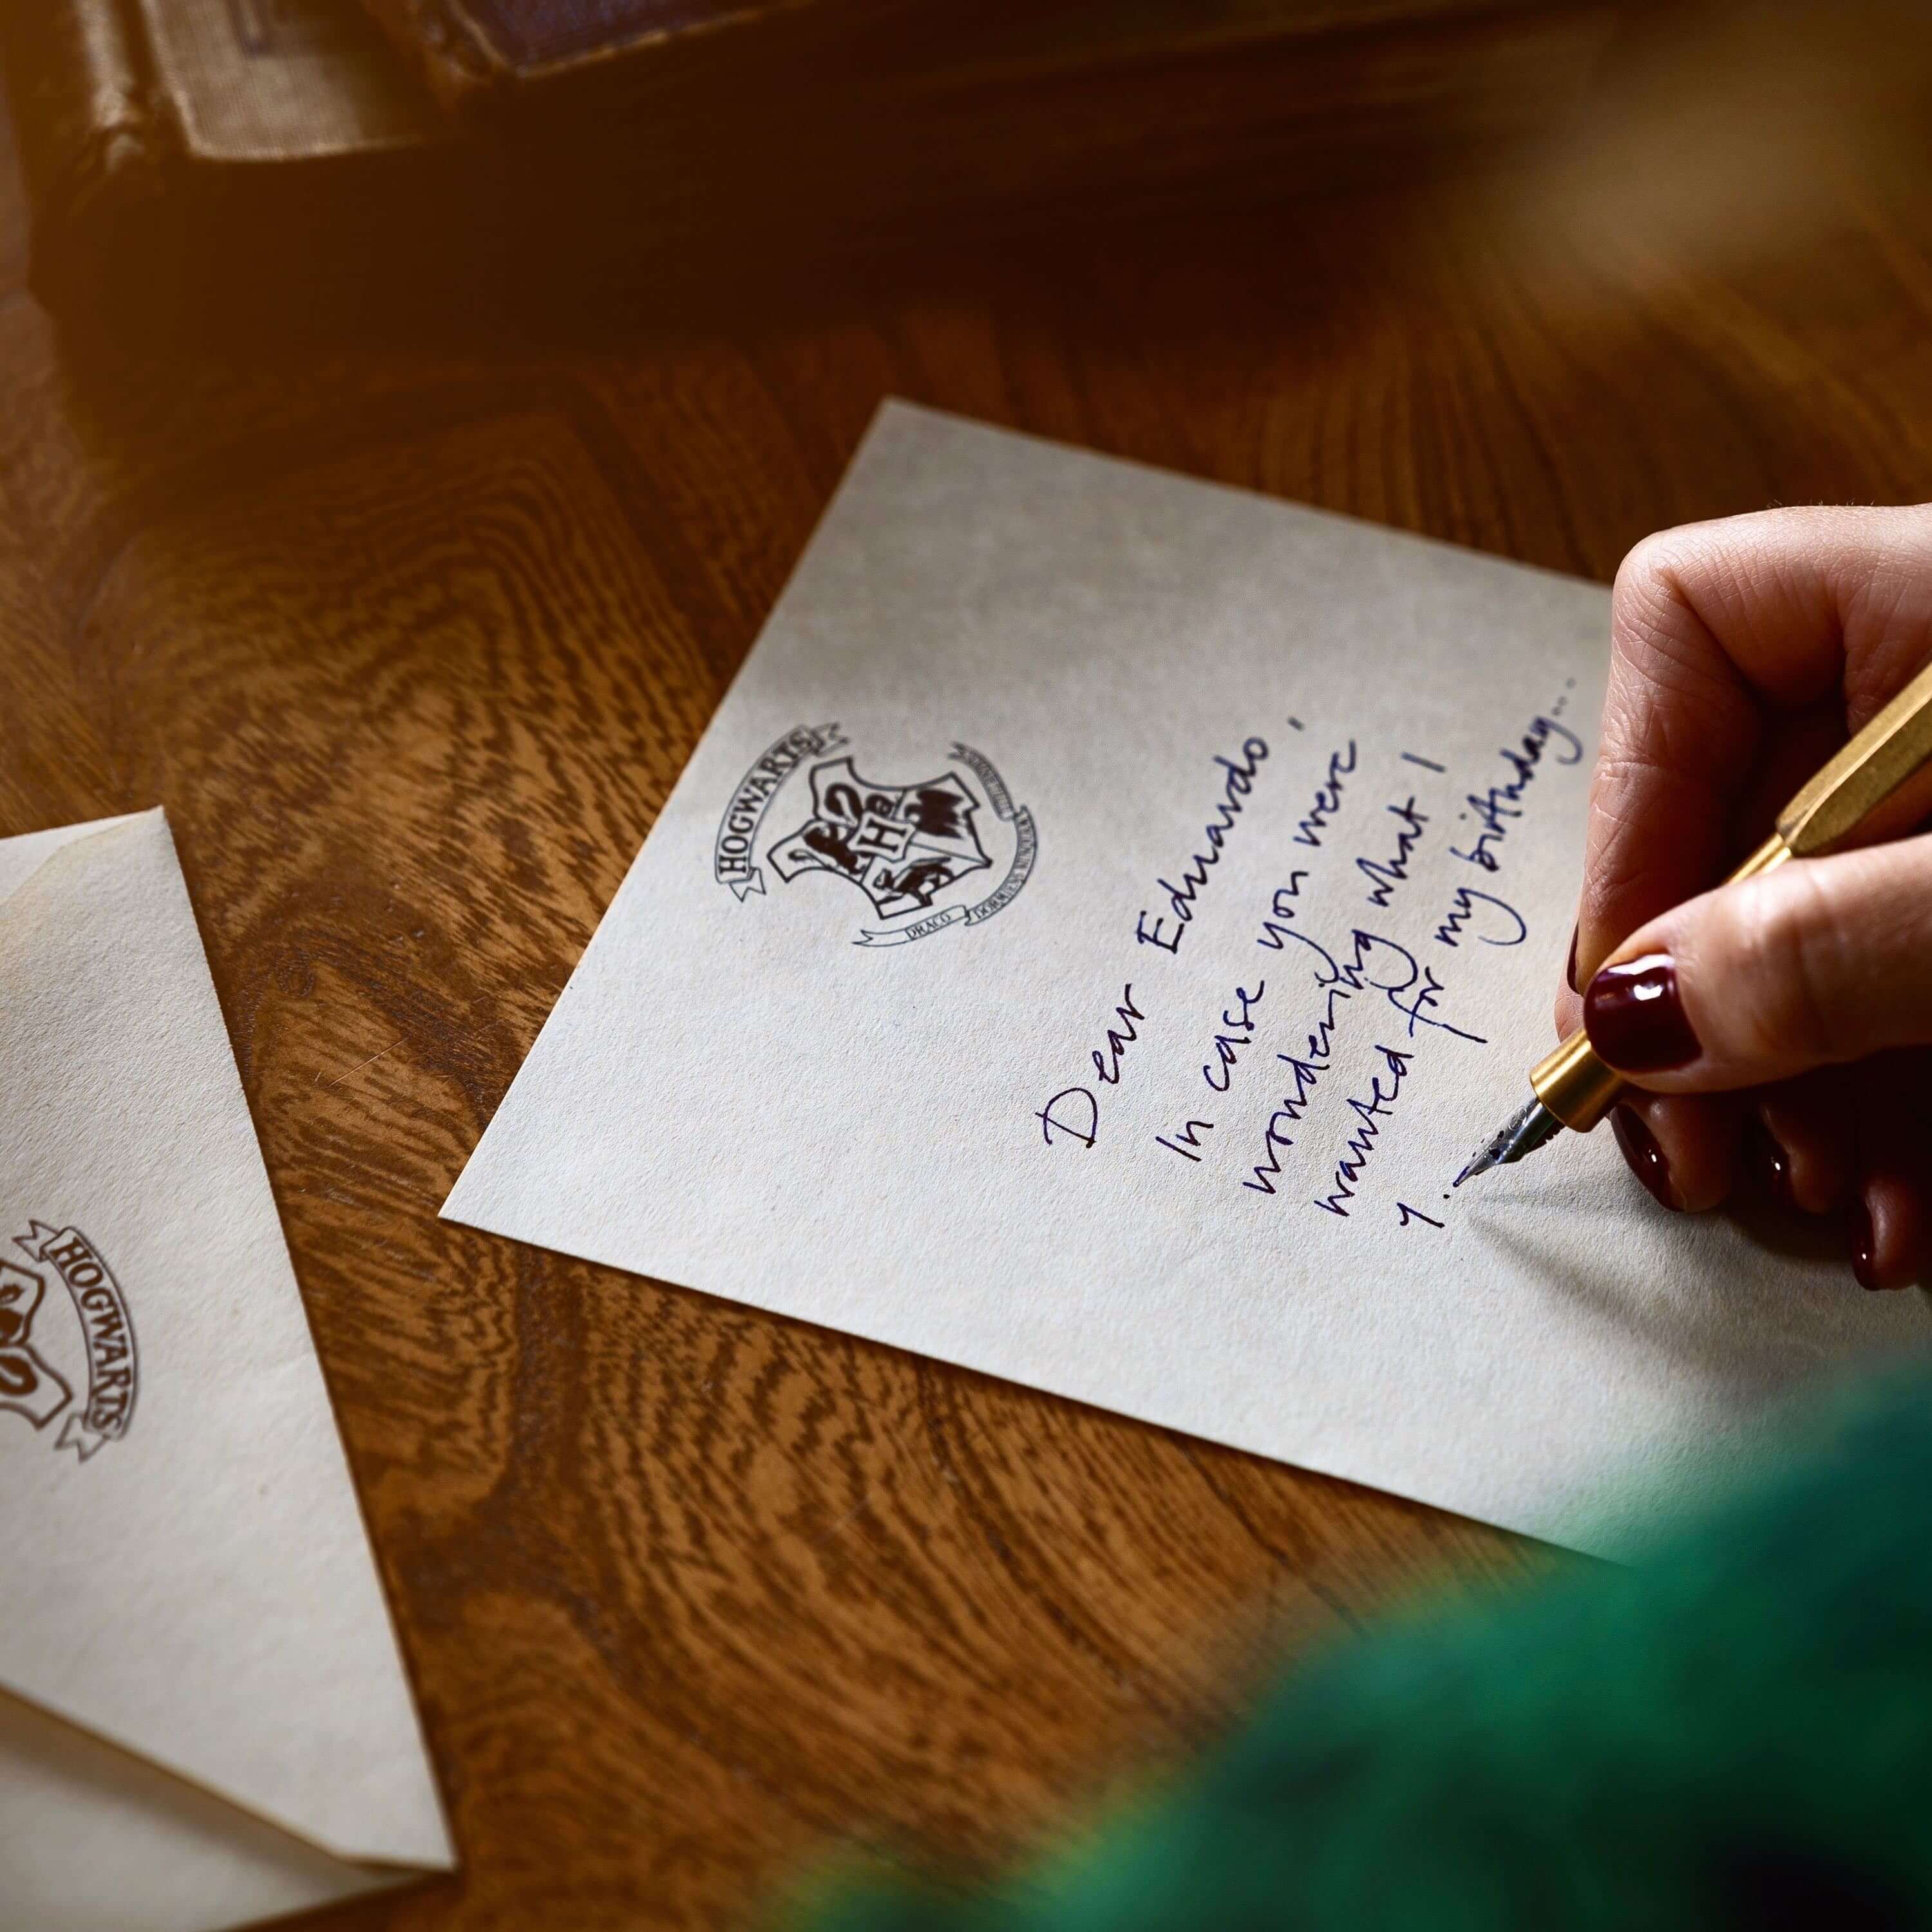 HOGWARTS
DRACO DORMIENS NUNQUAM
Dear Eduardo,
In case you were
wondering what I
wanted for my birthday...
1.
HOGWARTS